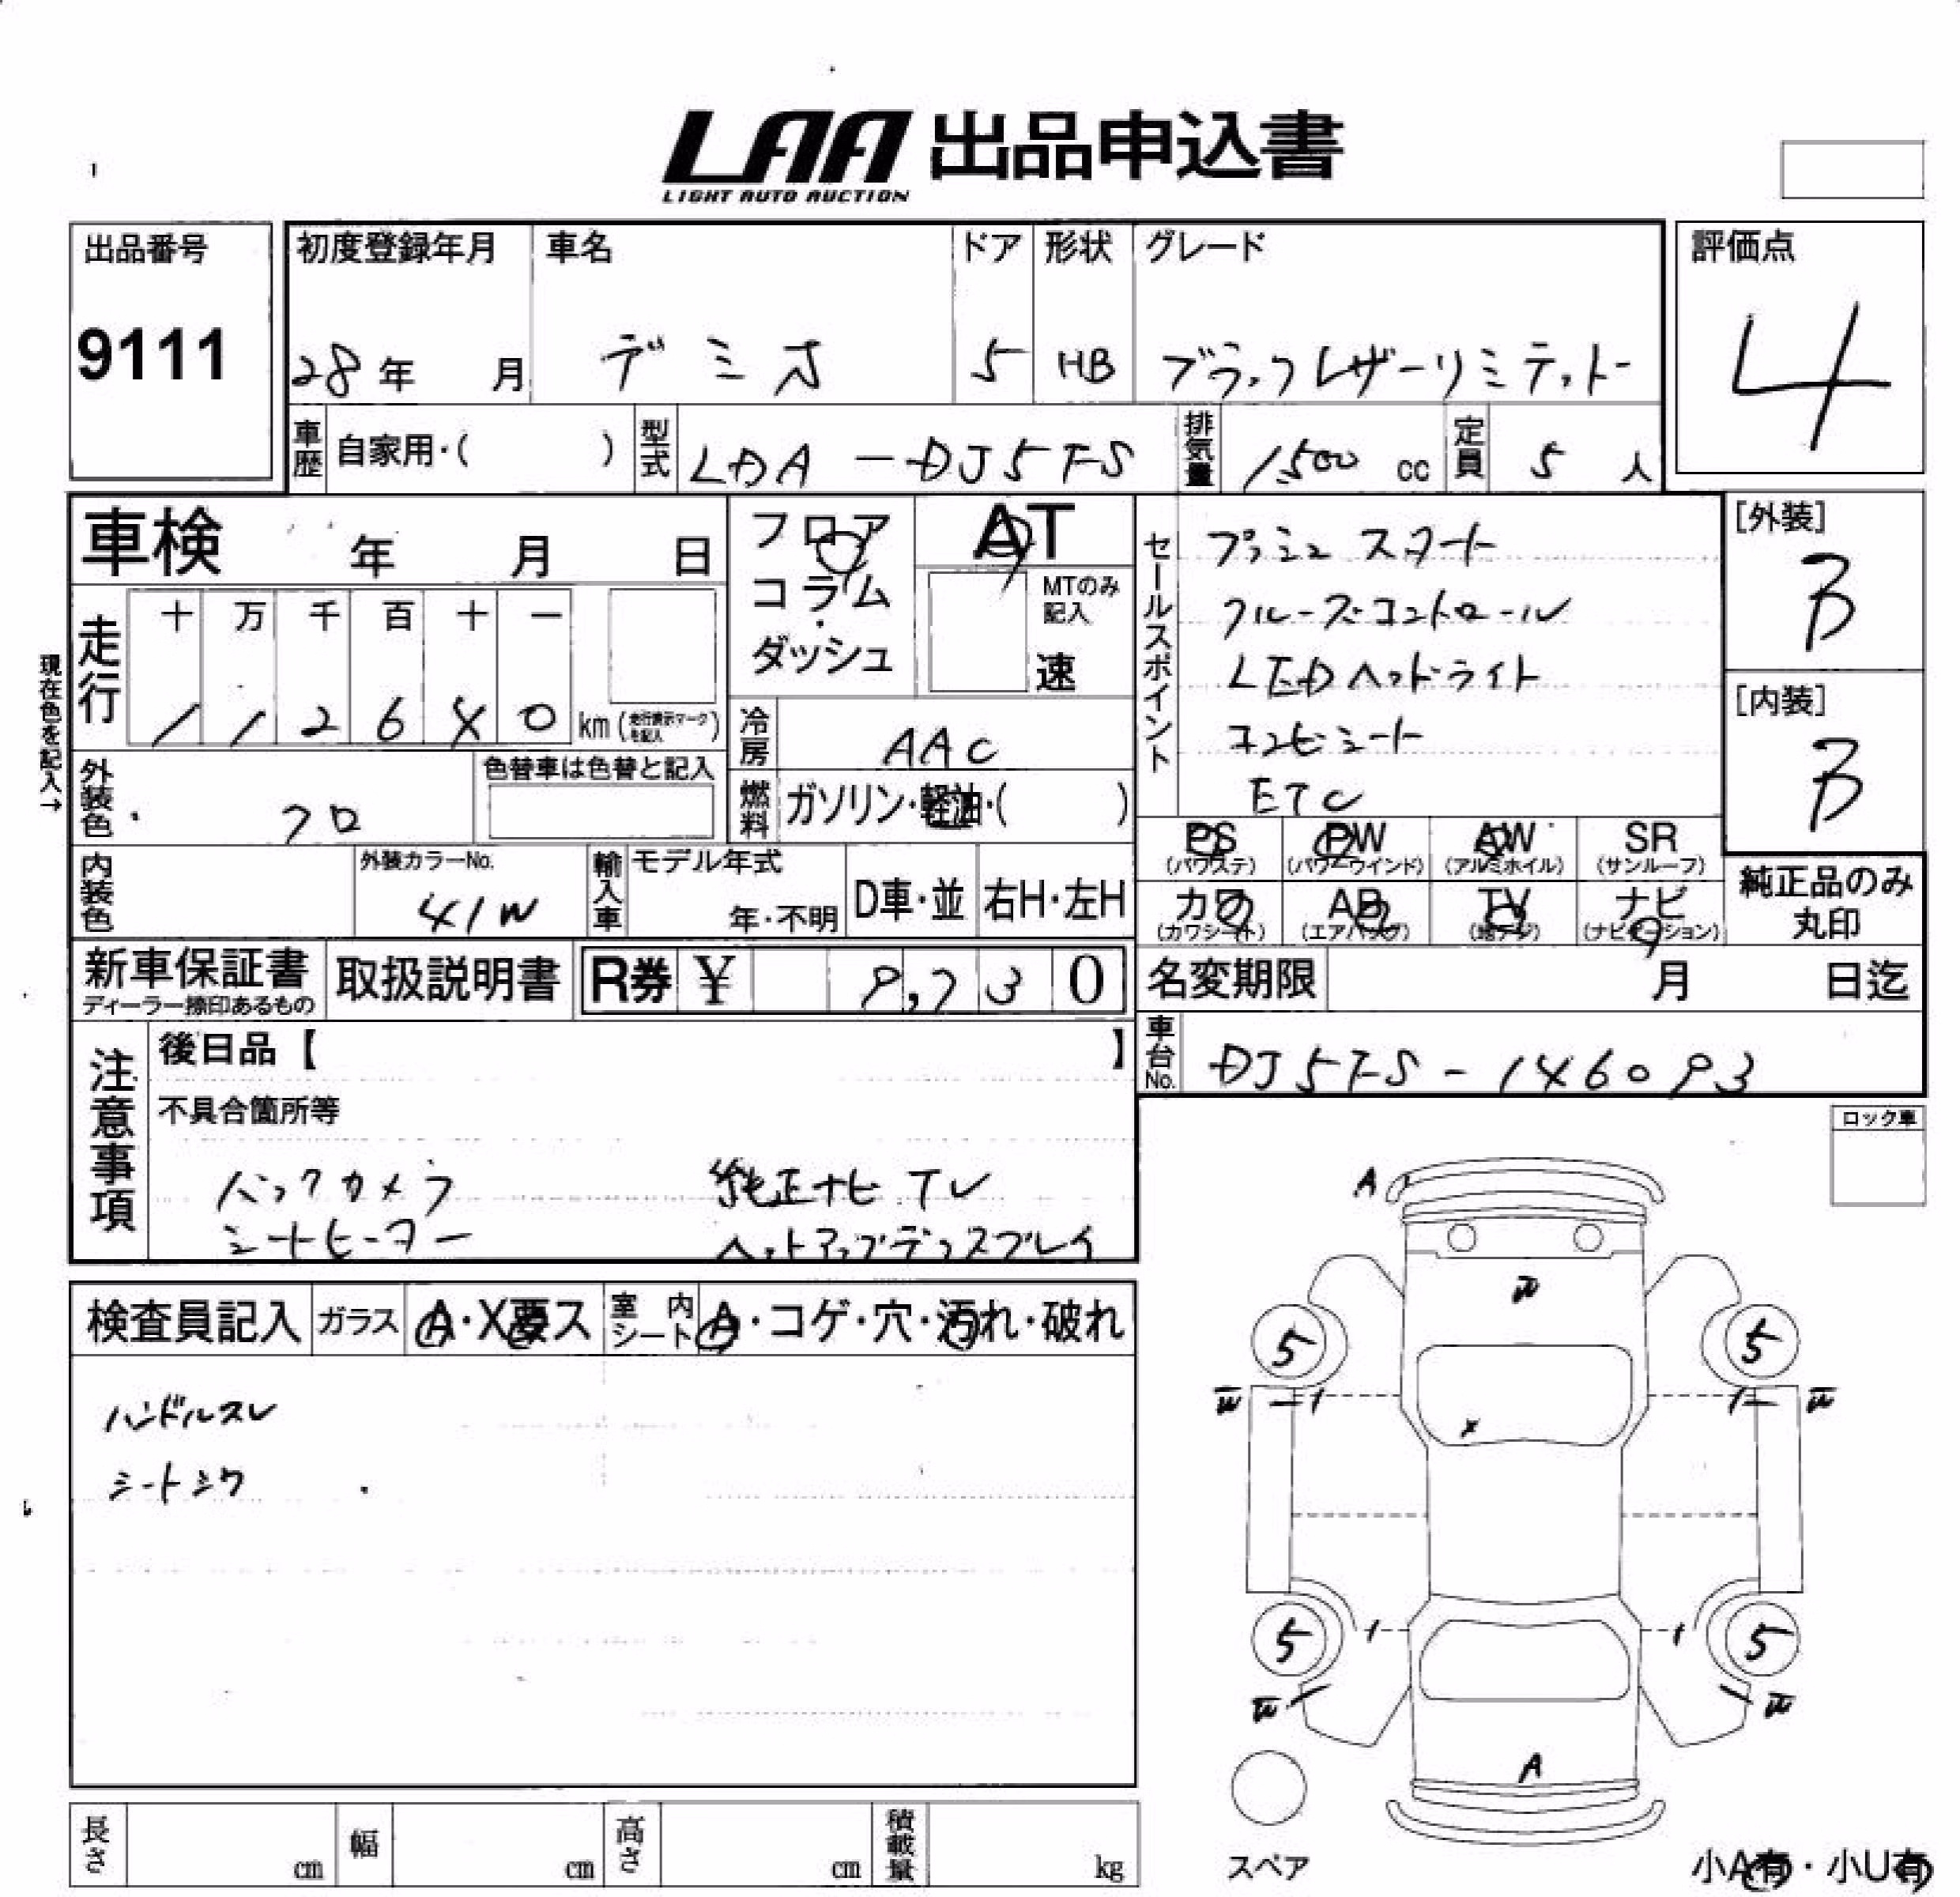 LAA 出品申込書
LIGHT AUTO AUCTION
出品番号
9111
初度登録年月 車名 ドア 形状 グレード
28年 月 デミオ 5 HB ブラックレザーリミテット
評価点
4
車歴 自家用・( ) 型式 LDA-DJ5FS 排気量 1500 cc 定員 5 人
車検 年 月 日
フロア
コラム
・
ダッシュ
AT
MTのみ
記入
速
走行 十 万 千 百 十 一
1 1 2 6 4 0 km (走行表示マークを記入)
現在色を記入→
冷房 AAC
燃料 ガソリン・軽油・( )
外装色 クロ
色替車は色替と記入
内装色
外装カラーNo.
41W
輸入車 モデル年式
年・不明 D車・並 右H・左H
セールスポイント
プッシュスタート
クルーズコントロール
LEDヘッドライト
コンビシート
ETC
[外装]
B
[内装]
B
PS PW AW SR
(パワステ) (パワーウインド) (アルミホイル) (サンルーフ)
カワ AB TV ナビ
(カワシート) (エアバッグ) (地デジ) (ナビゲーション)
純正品のみ
丸印
新車保証書
ディーラー捺印あるもの
取扱説明書
R券 ¥ 9,730
名変期限 月 日迄
車台No. DJ5FS-146093
注意事項
後日品【 】
不具合箇所等
バックカメラ 純正ナビ TV
シートヒーター ヘットアップディスプレイ
ロック車
検査員記入 ガラス A・X要ス 室内シート A・コゲ・穴・汚れ・破れ
ハンドルスレ
シートシワ
A
W
5 5
W W
X
5 5
W W
A
スペア
小A有・小U有
長さ cm 幅 cm 高さ cm 積載量 kg